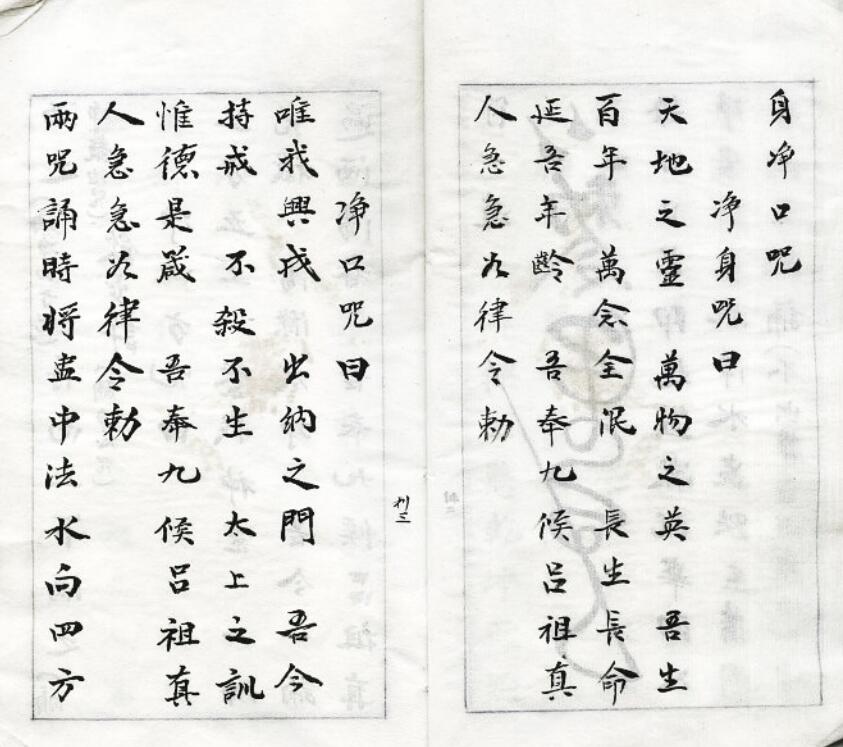 身净口咒
净身咒曰
天地之靈　萬物之英　吾生
百年　萬念全泯　長生長命
延吾年齡　吾奉九候吕祖真
人急急如律令勅
净口咒曰
唯我興戎　出納之門　吾今
持戒　不殺不生　太上之訓
惟德是箴　吾奉九候吕祖真
人急急如律令勅
兩咒誦時將盂中法水向四方